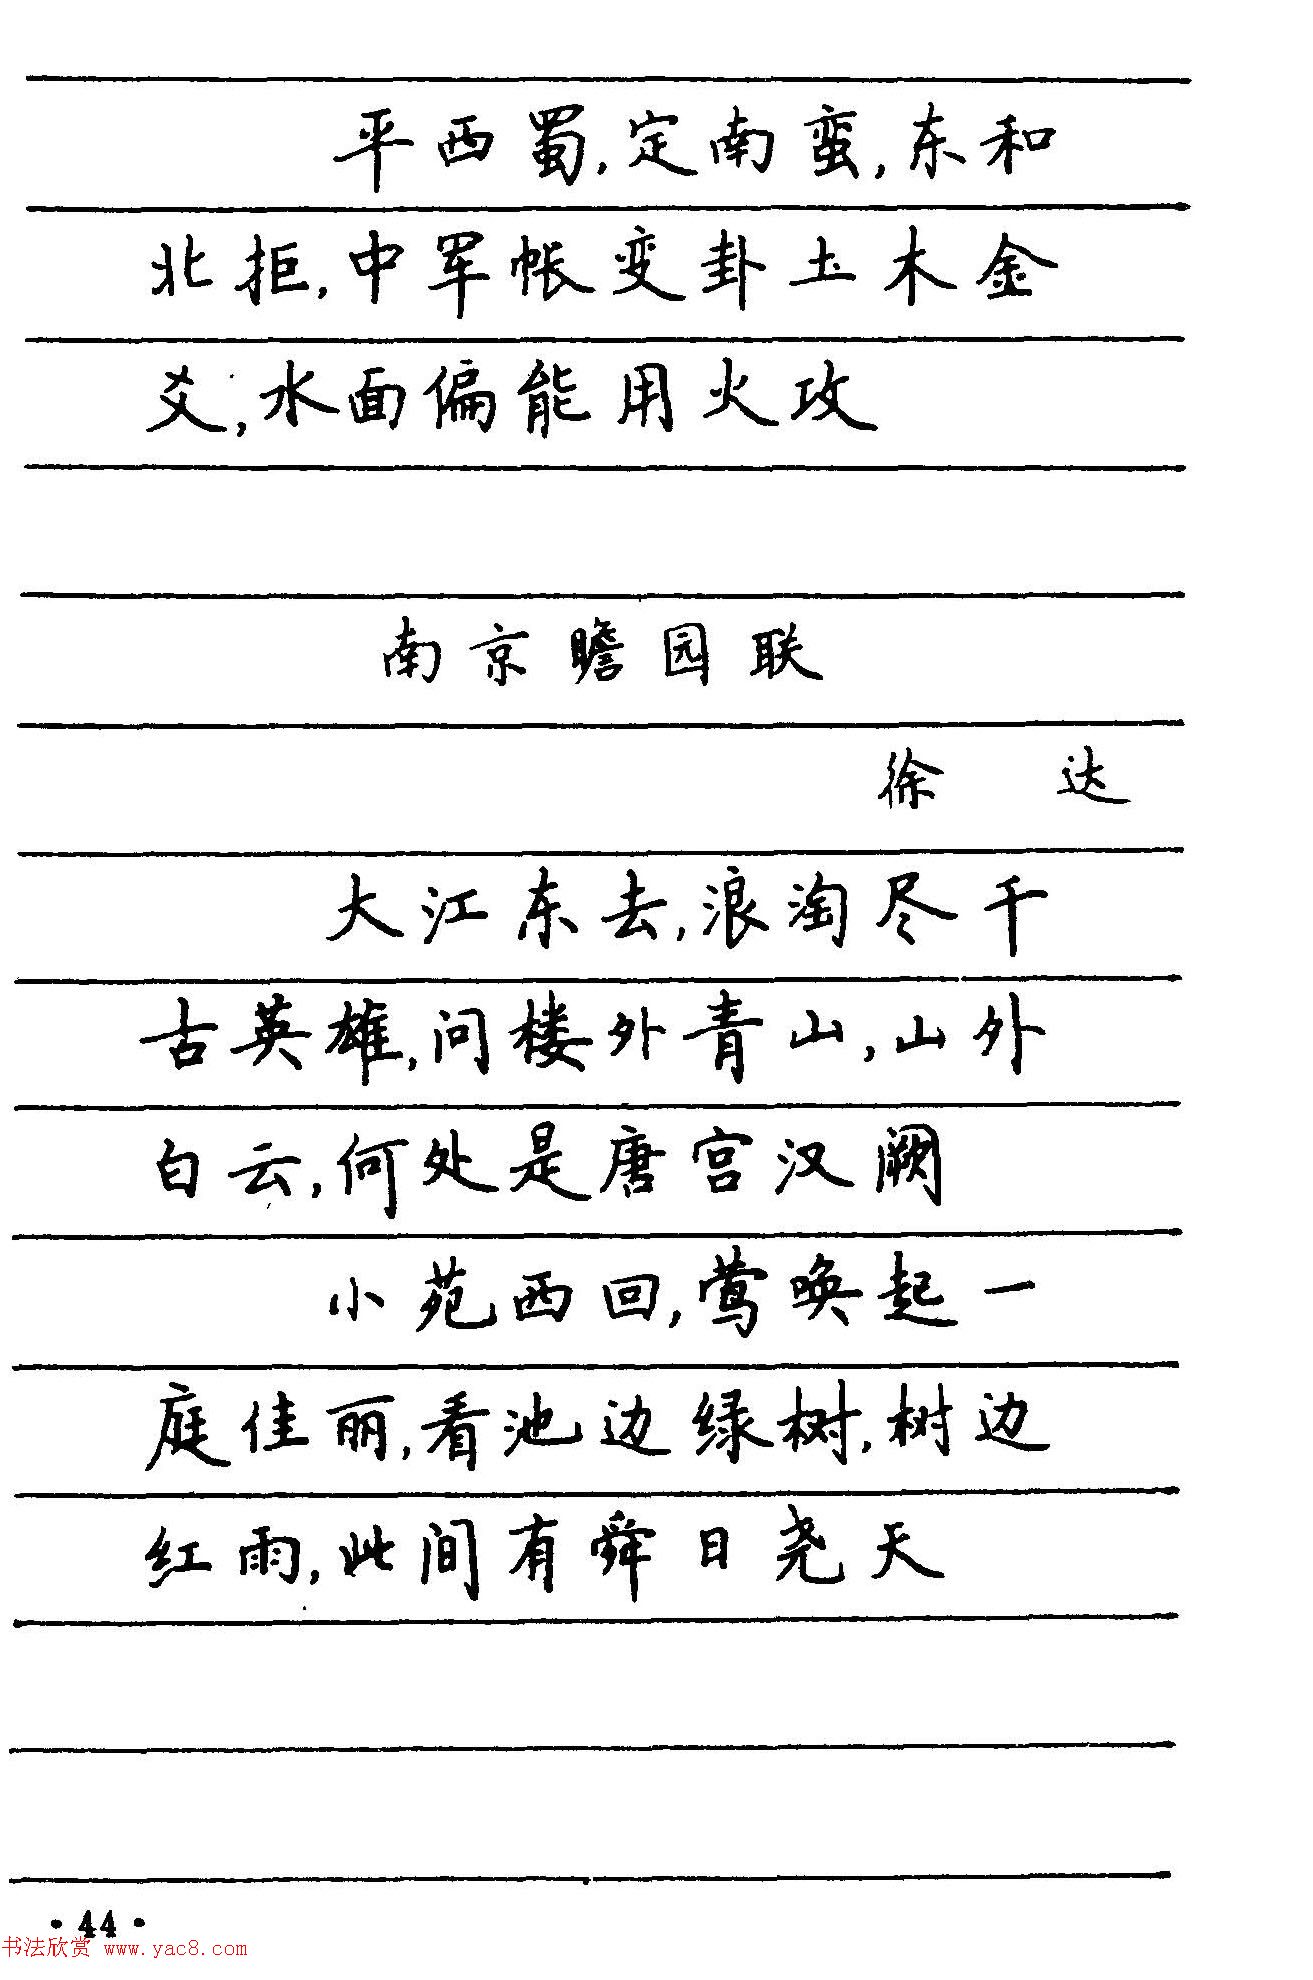 平西蜀,定南蛮,东和
北拒,中军帐变卦土木金
爻,水面偏能用火攻
南京瞻园联
徐 达
大江东去,浪淘尽千
古英雄,问楼外青山,山外
白云,何处是唐宫汉阙
小苑西回,莺唤起一
庭佳丽,看池边绿树,树边
红雨,此间有舜日尧天
·44·
书法欣赏 www.yac8.com